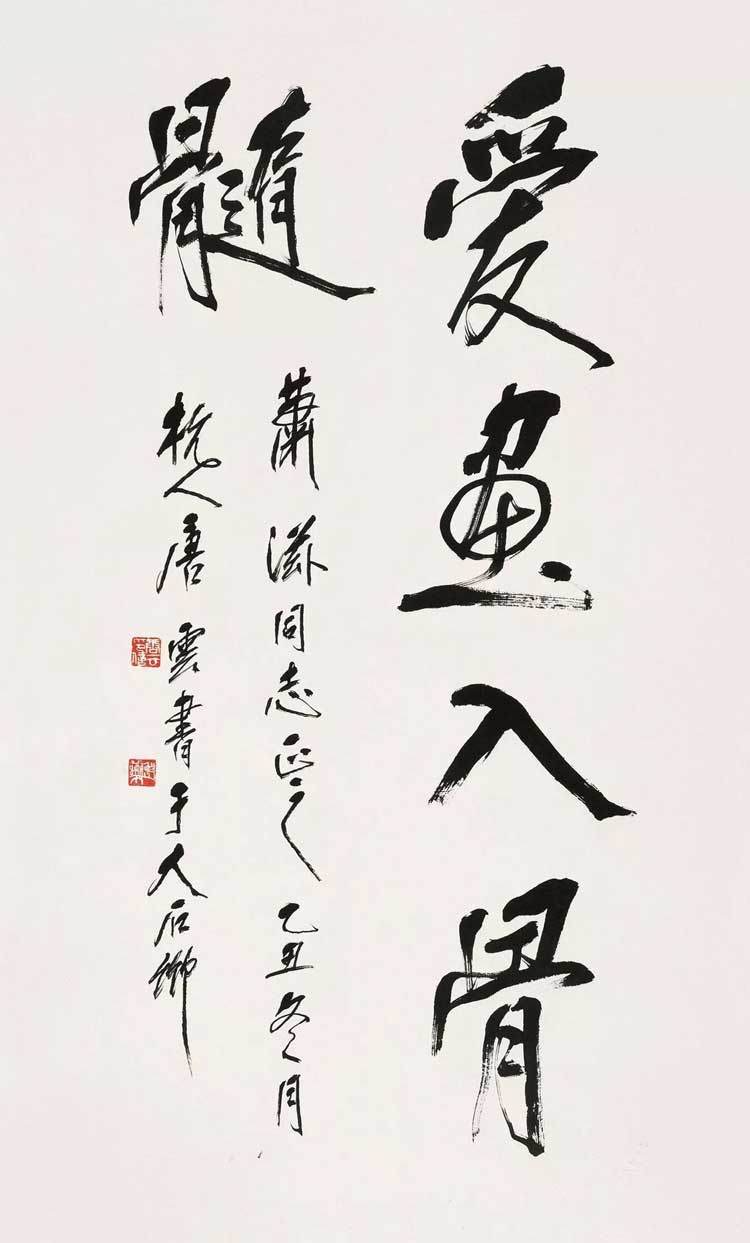 愛畫入骨
髓
蕭滋同志正之乙丑冬月
杭人唐雲書于大石